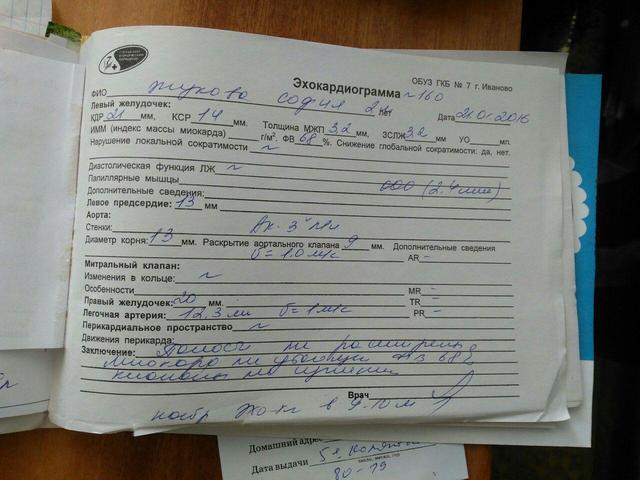 ОБУЗ ГКБ № 7 г. Иваново
Эхокардиограмма ~160
ФИО Жукова София 2 лет Дата 21.01.2016
Левый желудочек:
КДР 21 мм. КСР 14 мм. Толщина МЖП 3,2 мм, ЗСЛЖ 3,2 мм, УО мл.
ИММ (индекс массы миокарда) г/м². ФВ 68 %. Снижение глобальной сократимости: да, нет.
Нарушение локальной сократимости ~
Диастолическая функция ЛЖ ~
Папиллярные мышцы
Дополнительные сведения: ООО (2.4 мм)
Левое предсердие: 13 мм
Аорта:
Стенки:
Диаметр корня: 13 мм. Раскрытие аортального клапана 9 мм. Дополнительные сведения
V = 1.0 м/с AR –
Митральный клапан:
Изменения в кольце: ~
Особенности MR –
Правый желудочек: 20 мм. TR –
Легочная артерия: 12,3 мм V = 1 м/с PR –
Перикардиальное пространство ~
Движения перикарда:
Заключение: Полости не расширены
Миокард не утолщен ФВ 68%
клапаны не изменены
Врач
повтор ЭХО-КГ в 9-10 м
Домашний адрес
Дата выдачи
80-19